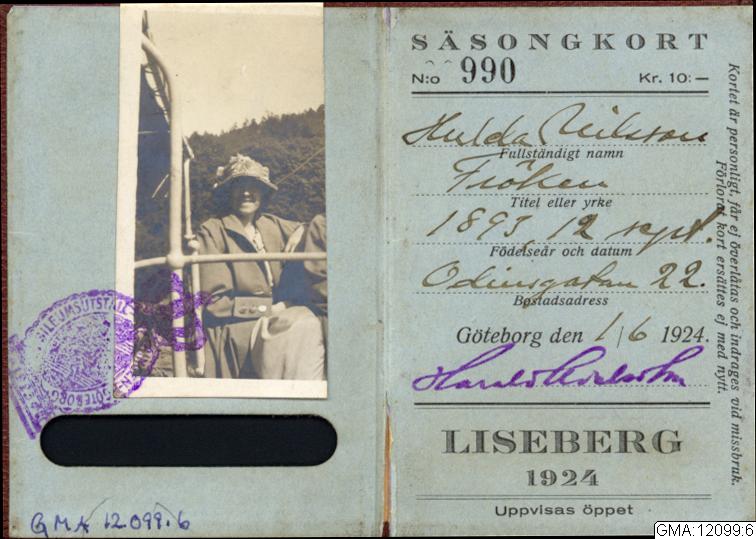 JUBILEUMSUTSTÄLL
GÖTEBORG
GMA 12099.6
SÄSONGKORT
N:o 990 Kr. 10:—
Hulda Nilsson
Fullständigt namn
Fröken
Titel eller yrke
1893 12 sept.
Födelseår och datum
Odinsgatan 22.
Bostadsadress
Göteborg den 1/6 1924.
Harald
LISEBERG
1924
Uppvisas öppet
Kortet är personligt, får ej överlåtas och indrages vid missbruk.
Förlorat kort ersättes ej med nytt.
GMA:12099:6